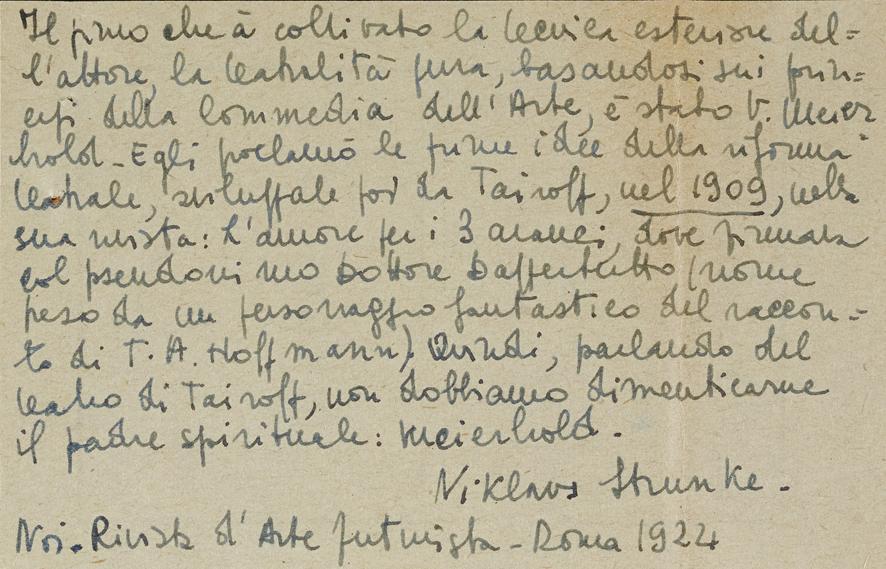 Il primo che à coltivato la tecnica esteriore del=
l'attore, la teatralità pura, basandosi sui prin=
cipi della Commedia dell'Arte, è stato V. Meier
hold - Egli proclamò le prime idee della riforma
teatrale, sviluppate poi da Tairoff, nel 1909, nella
sua rivista: L'amore per i 3 aranci, dove firmava
col pseudonimo Dottore Dappertutto (nome
preso da un personaggio fantastico del raccon=
to di T. A. Hoffmann). Quindi, parlando del
teatro di Tairoff, non dobbiamo dimenticarne
il padre spirituale: Meierhold.
Niklaus Strunke.
Noi. Rivista d'Arte futurista - Roma 1924